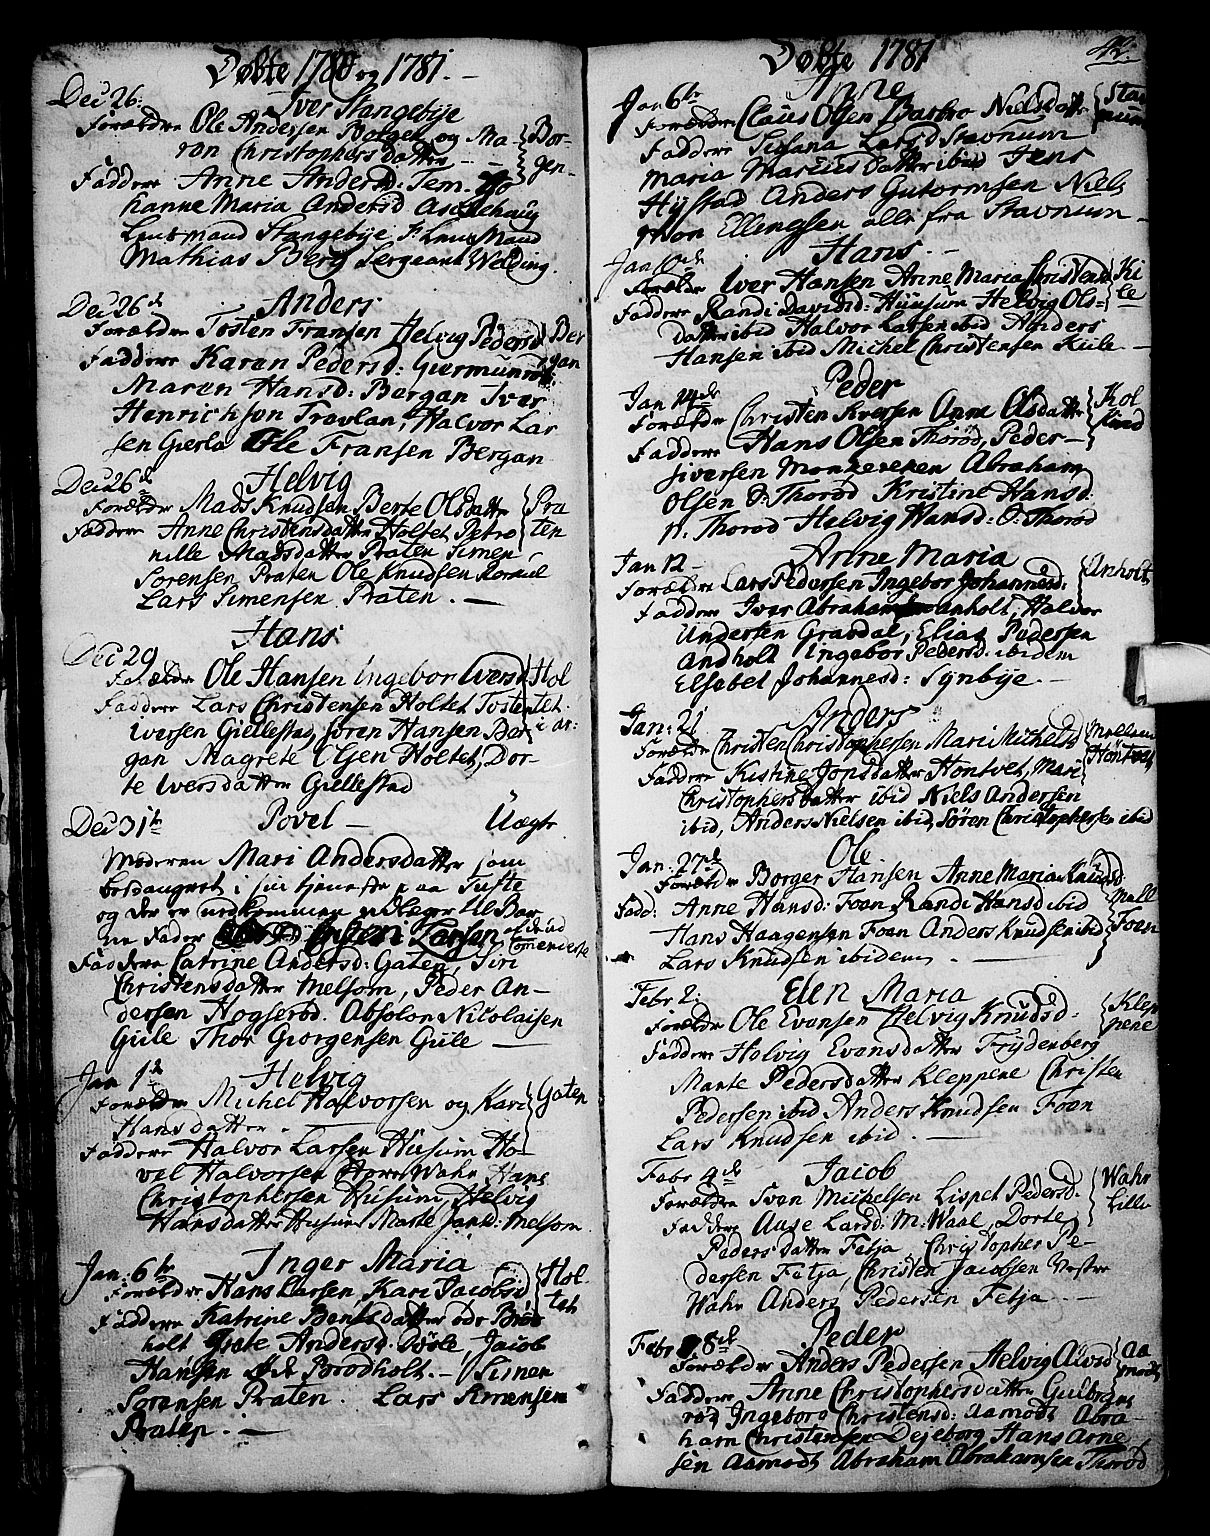 Døbte 1780 og 1781. -
Dec 26. Iver Stangebije
Forældre Ole Andersen Borgen og Ma- Bor-
ren Christophersdatter - - gen -
Faddere Anne Andersd: Tem. Jo
hanne Maria Andersd Askehaug
Leutenand Stangebije Fr Leut Maud
Mathias Berg Sergeant Welding.
Dec 26d Anders
Forældre Tosten Fransen Helvig Pedersd Ber
Faddere Karen Pedersd: Giermundrød gan
Maren Hansd: Bergan Iver
Henrichson Travlan, Halvor Lar
sen Gierla Ole Fransen Bergan
Dec 26d Helvig
Forældre Mads Knudsen Berte Olsdatter Pra
Faddere Anne Christensdatter Holtet Petro ten
nille Madsdatter Praten Simen
Sørensen Praten Ole Knudsen
Lars Simensen Praten. -
Hans
Dec 29
Forældre Ole Hansen Ingebor Iversd Hol
Faddere Lars Christensen Holtet Tosten tet
iversen Giellestad, Søren Hansen Ber i ar:
gan Magrete Olsen Holtet, Dor-
te Iversdatter Giellestad
Dec 31te Povel - Uægte
Moderen Mari Andersdatter som
besvangret i sin tieneste paa Tufte
og der er nedkommen udlægger til Bar
ne Fader Larsen
Faddere Catrine Andersd: Gaten, Siri
Christensdatter Melsom, Peder An-
dersen Hogserød. Absolon Nicolaisen
Gule Thor Giorgensen Gule -
Jan 1te Helvig
Forældre Michel Halvorsen og Kari Gaten
Hansdatter. -
Faddere Halvor Larsen Husum Ho-
vel Halvorsen Store Wahr, Hans
Christophersen Husum, Helvig
Hansdatter Husum Marte Jansd: Melsom
Jan: 6te Inger Maria
Forældre Hans Larsen, Kari Jacobsd Hol-
Faddere Katrine Bentsdatter øde Brød tet
holt Grete Andersd: Bøsle, Jacob
Hansen Øde Brødholt. - Simen
Sørensen Praten. Lars Simensen
Praten. -
Døbte 1781 42.
Jan 6te Anne
Forældre Claus Olsen Barbro Nielsdatter Stav
Faddere Sigana Larsd Stavnum num
Maria Mariusdatter ibid Jens
Hystad Anders Gutormsen Niels
mon Ellingsen alle fra Stavnum -
Hans. -
Jan 10de
Forældre Iver Hansen Anne Maria Christensd Ki
Faddere Randi Davidsd: Husum Helvig Ols- le
datter ibid Halvor Larsen ibid Anders
Hansen ibid Michel Christensen Kiile -
Peder
Jan 14de
Forældre Christen Iversen Anne Olsdatter Kol
Faddere Hans Olsen Thorød, Peder- kind
siversen Monkereken Abraham
Olsen Ø: Thorød Kristine Hansd:
N. Thorød Helvig Hansd: Ø: Thorød
Jan 12 - Anne Maria
Forældre Lars Pedersen Ingebor Johannesd: Anholt
Faddere Iver Abrahamsen anholt, Halvor
Andersen Gravdal, Elias Pedersen
Andholt Ingebor Pedersd: ibidem
Elsebet Johannesd: Synbye. -
Jan: 21 Anders
Forældre Christen Christophersen Mari Michelsd Mellem
Faddere Kistine Jonsdatter Hontvet, Mari Høntvet
Christophersdatter ibid Niels Andersen
ibid, Anders Nielsen ibid, Søren Christophersen ibid
Jan: 27de Ole
Forældre Borger Hansen Anne Maria Knudsd:
Fadd: Anne Hansd: Foen Randi Hansd ibid Mell
Hans Haagensen Foen Anders Knudsen ibid Foen
Lars Knudsen ibidem. -
Febr 2: Elen Maria
Forældre Ole Evensen Helvig Knudsd: Klep
Faddere Holvig Evensdatter Frydenberg pene
Marte Pedersdatter Kleppene Christen
Pedersen ibid Anders Knudsen Foen
Lars Knudsen ibid. -
Febr 9de Jacob
Forældre Sven Michelsen Lispet Pedersd. Wahr
Faddere Aase Larsd: M: Waal, Dorte Lille
Pedersdatter Fetja, Christopher Pe-
dersen Fetja, Christen Jacobsen Vestre
Wahr Anders Pedersen Fetja. -
Febr 8de Peder
Forældre Anders Pedersen Helvig Alvsd Aa
Faddere Anne Christophersdatter Gulbrans modt
rød Ingeborg Christensd: Aamodt Abra-
ham Christensen Dejeborg Hans Arne
sen Aamodt Abraham Abrahamsen Thorød